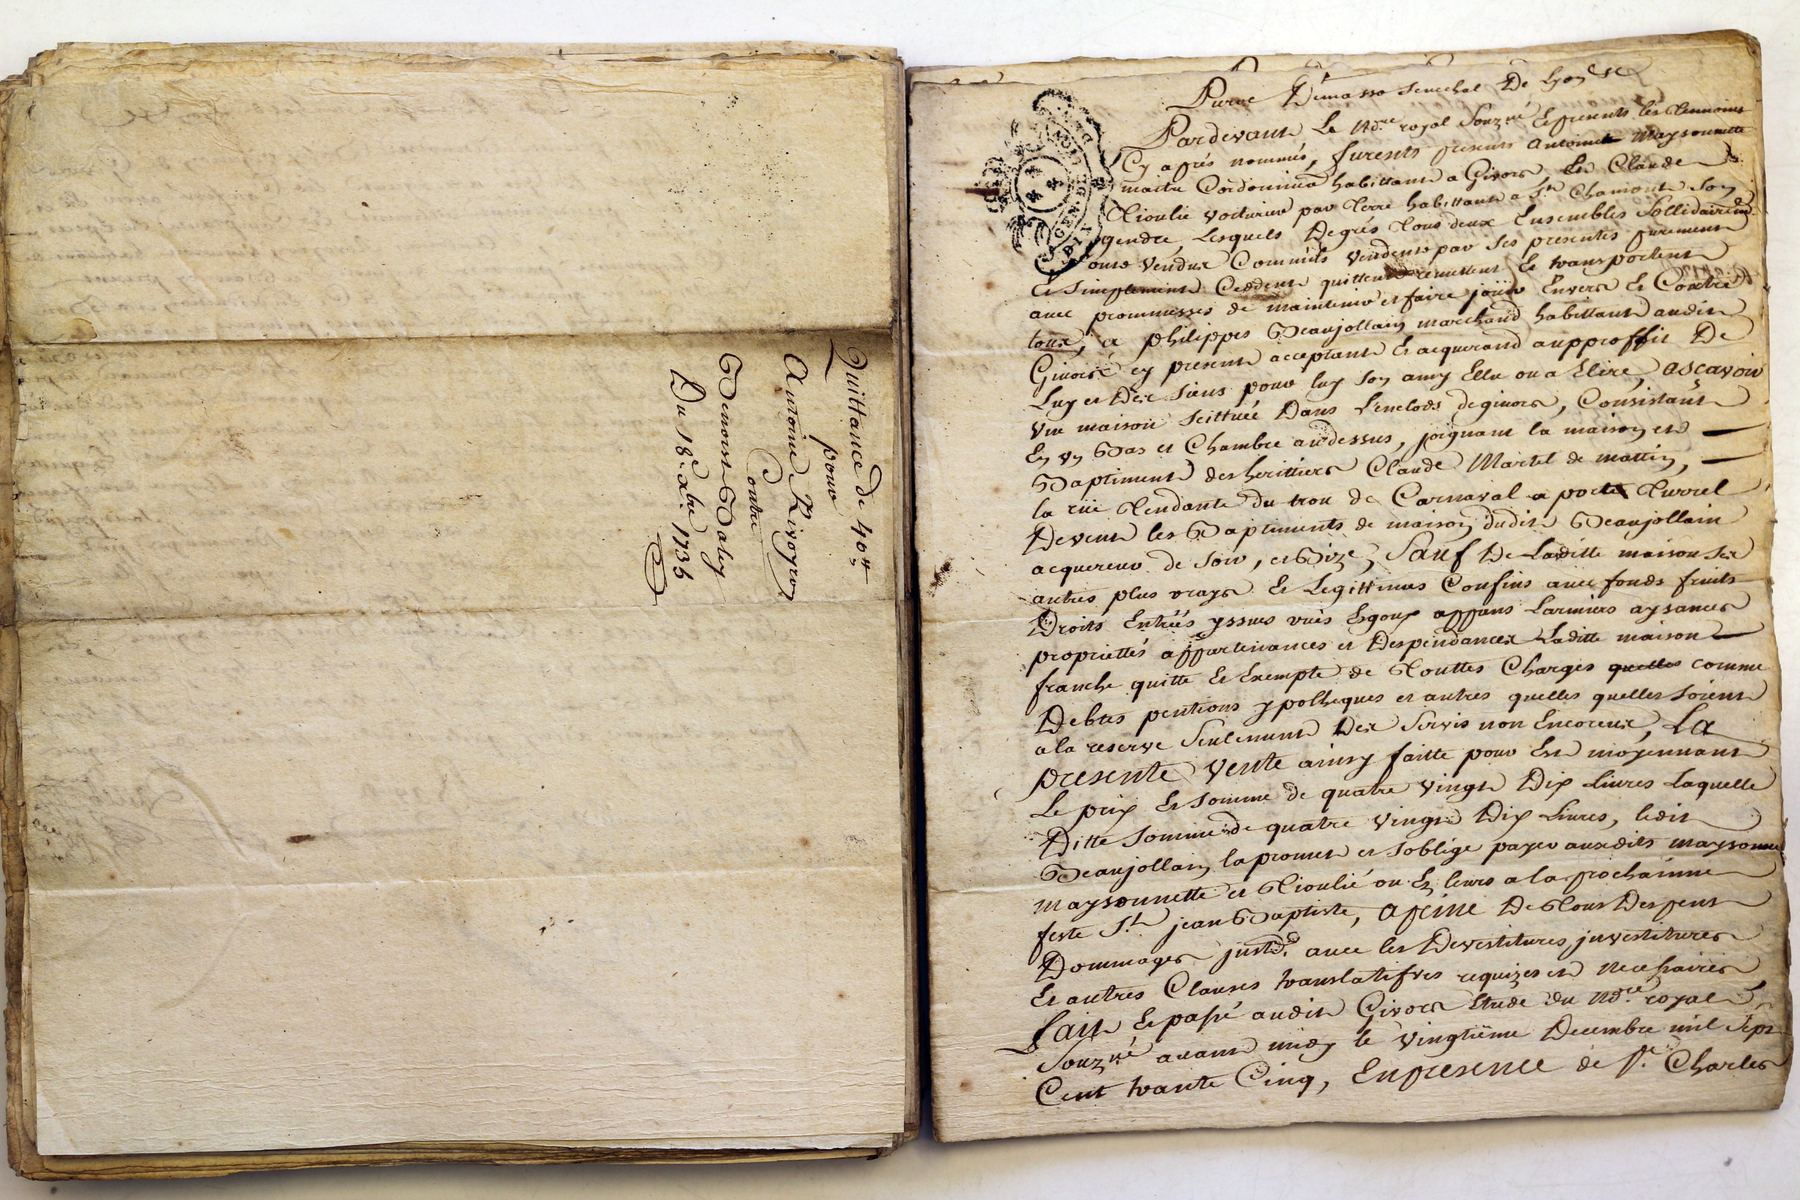 Quittance de 40ᵗᵗ
pour
Antoine Rivoyron
Contre
Benoist Baley
Du 18ᵉ xbre 1735
Senechal De Lyon
Pardevant Le Nore royal Souzné Et presents les temoins
Cy aprés nommés, furents presents Antoine Maysonnette
maitre Cordonnier habittant a Givors Et Claude
Tioulié voiturier par terre habittant a St Chamont Son
gendre, Lesquels De grés tous deux Ensembles Sollidairemt
ont vendux Commils vendent par Ses presentes purement
Et Simplement Ceddent quittent remettent Et transportent
avec prommesses de maintenir et faire joüir Envers Et Contre
tous, a philippes Beaujollain marchand habittant audit
Givors cy present acceptant Et acquerand aupproffit De
Luy et Des Siens pour luy Son amy Ellu ou a Elire, ascavoir
Une maison Scittuée Dans Lenclos de givors, Consistant
En un Bas et Chambre audessus, joignant la maison et
Baptiment des herittiers Claude Martel de mattin,
la rüe Tendante du trou de Carnaval a porte Turrel
Devent les Baptiments de maison dudit Beaujollain
acquereur de Soir, et Bize, Sauf De Laditte maison Ses
autres plus vrays Et Legittimes Confins avec fonds fruits
Droits Entrées yssues vuës Egoux appans Larmiers aysances
propriettés appartenances et Despendances Laditte maison
franche quitte Et Exempte de Touttes Charges quelles comme
Debtes pentions ypotheques et autres quelles quelles soient
a la reserve Seulement Des Servis non Encoreux, La
presente Vente ainsy faitte pour Et moyennant
Le prix Et Somme de quatre vingt Dix Livres Laquelle
Ditte Somme de quatre vingt Dix Livres, ledit
Beaujollain la promet et soblige payer auxdits maysonne
maysonnette et Tioulié ou Es leurs a la prochainne
feste St jean Baptiste, a peine De Tous Despens
Dommages justd. avec les Devestitures, investitures
Et autres Clauses translatifves requizes et necessaires
fait Et passé audit Givors Etude du Nore royal
Souzné avant midy le vingtiême Decembre mil Sept
Cent trante Cinq, En presence de Sr. Charles